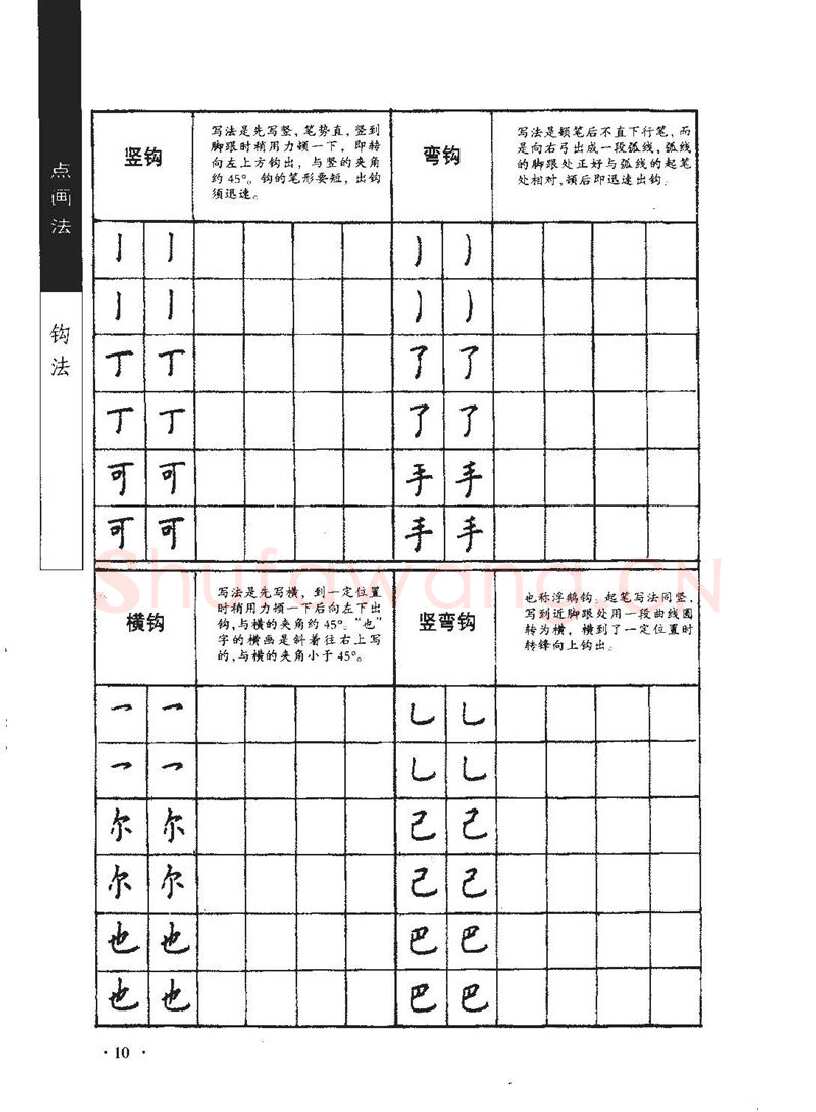 点画法
钩法
竖钩
写法是先写竖，笔势直，竖到
脚跟时稍用力顿一下，即转
向左上方钩出，与竖的夹角
约45°。钩的笔形要短，出钩
须迅速。
弯钩
写法是顿笔后不直下行笔，而
是向右弓出成一段弧线，弧线
的脚跟处正好与弧线的起笔
处相对。顿后即迅速出钩。
亅 亅
亅 亅
丁 丁
丁 丁
可 可
可 可
了 了
了 了
手 手
手 手
横钩
写法是先写横，到一定位置
时稍用力顿一下后向左下出
钩，与横的夹角约45°。“也”
字的横画是斜着往右上写
的，与横的夹角小于45°。
竖弯钩
也称浮鹅钩。起笔写法同竖，
写到近脚跟处用一段曲线圆
转为横，横到了一定位置时
转锋向上钩出。
乛 乛
乛 乛
尔 尔
尔 尔
也 也
也 也
乚 乚
乚 乚
己 己
己 己
巴 巴
巴 巴
Shufawang.CN
·10·